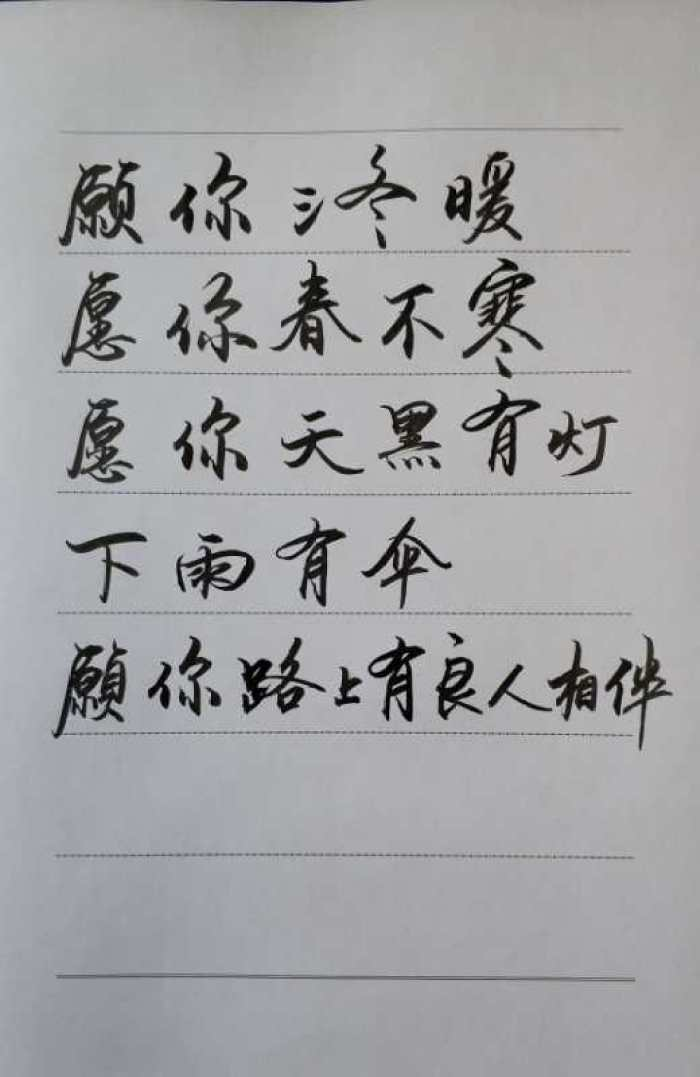 願你三冬暖
愿你春不寒
愿你天黑有灯
下雨有伞
願你路上有良人相伴